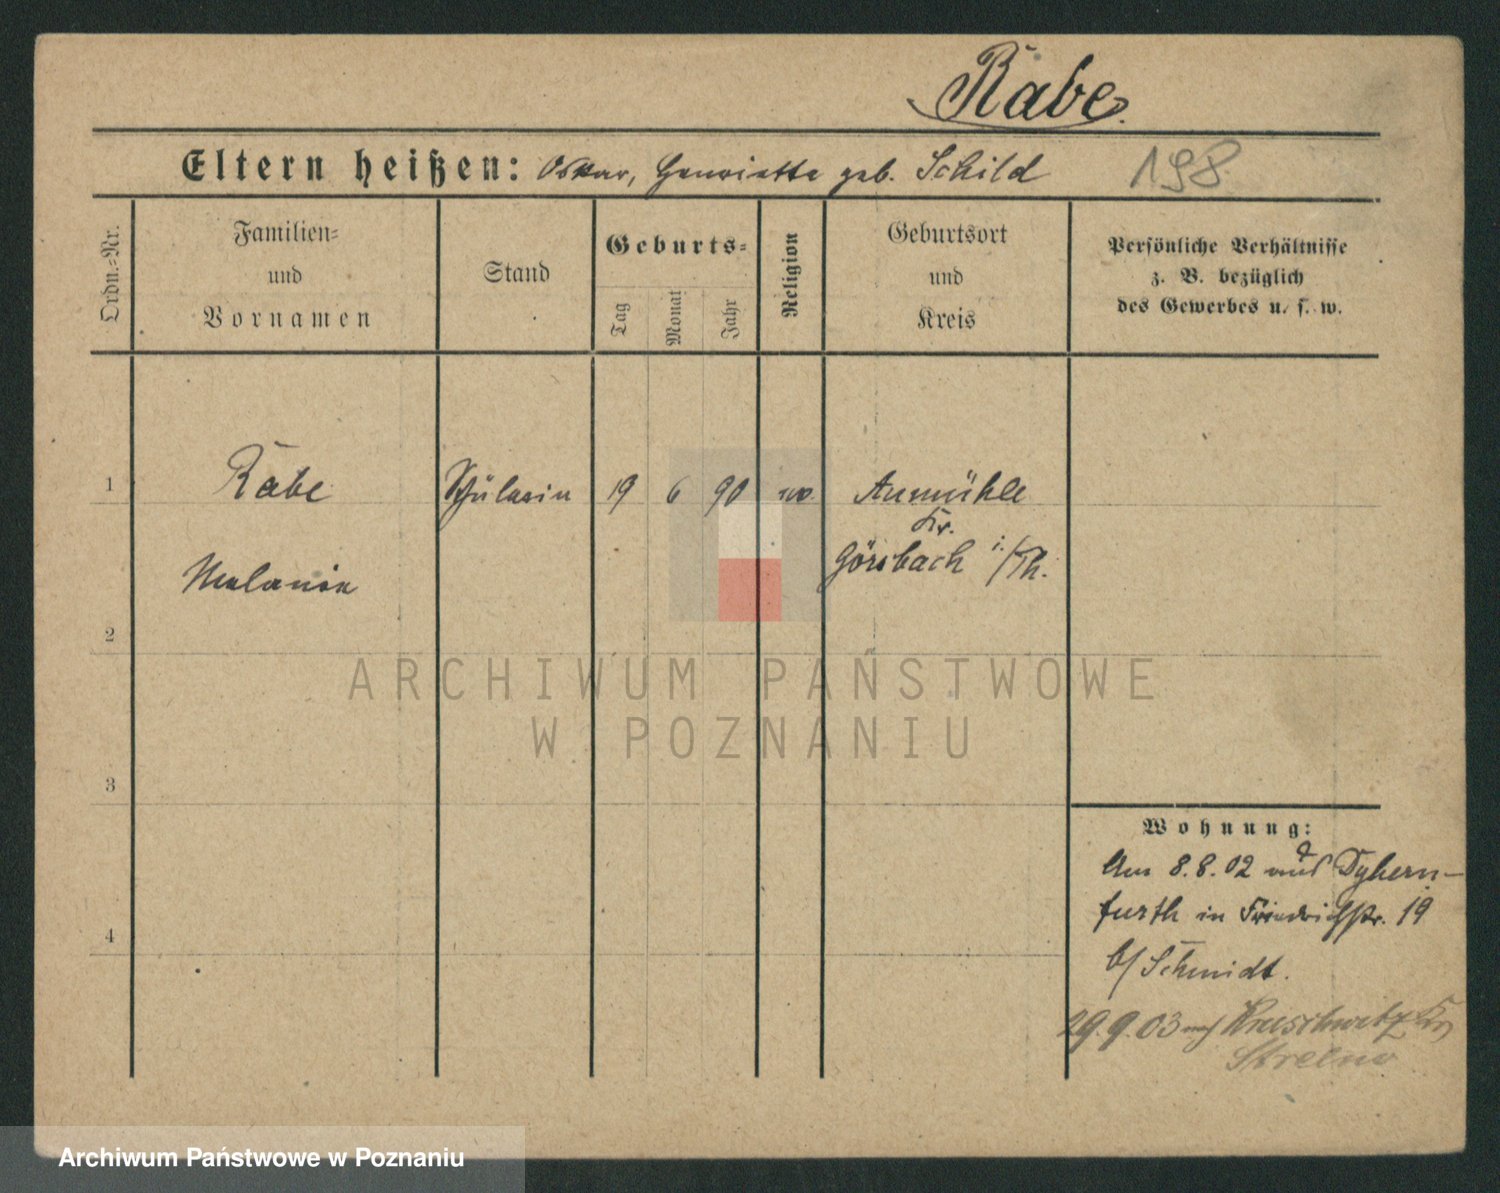 Rabe.
Eltern heißen: Oskar, Henriette geb. Schild 198
Ordn.=Nr.
Familien=
und
Vornamen
Stand
Geburts=
Tag
Monat
Jahr
Religion
Geburtsort
und
Kreis
Persönliche Verhältnisse
z. B. bezüglich
des Gewerbes u. s. w.
1 Rabe Schülerin 19 6 90 Aumühle
Kr.
Melanie Görsbach i./Th.
2
ARCHIWUM PAŃSTWOWE
W POZNANIU
3
Wohnung:
Am 8.8.02 aus Dyhern-
furth in Friedrichstr. 19
4
b/ Schmidt.
29.9.03 Kruschwitz Kr.
Strelno
Archiwum Państwowe w Poznaniu